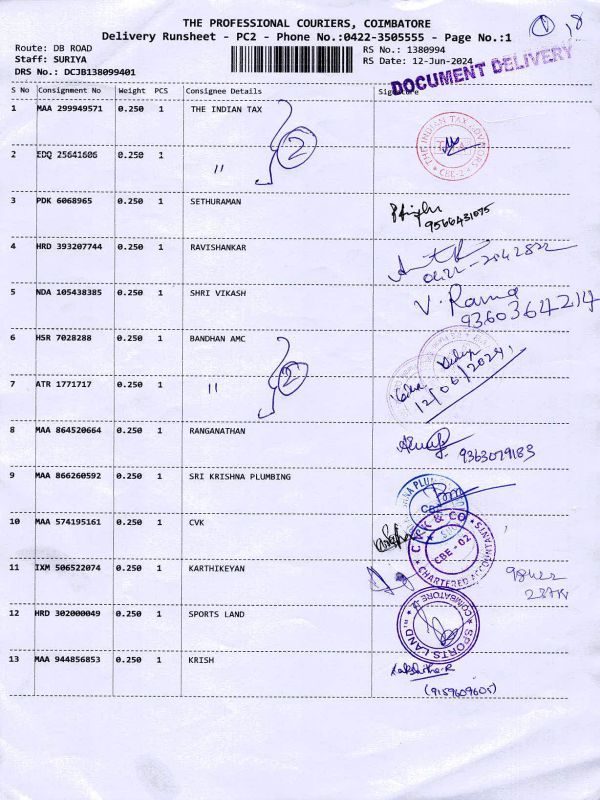 THE PROFESSIONAL COURIERS, COIMBATORE
Delivery Runsheet - PC2 - Phone No.:0422-3505555 - Page No.:1
Route: DB ROAD
RS No.: 1380994
Staff: SURIYA
RS Date: 12-Jun-2024
DRS No.: DCJB138099401
DOCUMENT DELIVERY
S No Consignment No Weight PCS Consignee Details Signature
1 MAA 299949571 0.250 1 THE INDIAN TAX
THE INDIAN TAX ADVISORS CBE-2
2 EDQ 25641606 0.250 1 " 2
3 PDK 6068965 0.250 1 SETHURAMAN
9566431075
4 HRD 393207744 0.250 1 RAVISHANKAR
0422-2042822
5 NDA 105438385 0.250 1 SHRI VIKASH V. Rama
9360364214
6 HSR 7028288 0.250 1 BANDHAN AMC
7 ATR 1771717 0.250 1 " 2
12/06/2024
8 MAA 864520664 0.250 1 RANGANATHAN
9363079183
9 MAA 866260592 0.250 1 SRI KRISHNA PLUMBING
10 MAA 574195161 0.250 1 CVK
& CO CHARTERED ACCOUNTANTS CBE-02
11 IXM 506522074 0.250 1 KARTHIKEYAN
12 HRD 302000049 0.250 1 SPORTS LAND
SPORTS LAND COIMBATORE
13 MAA 944856853 0.250 1 KRISH
(9159609605)